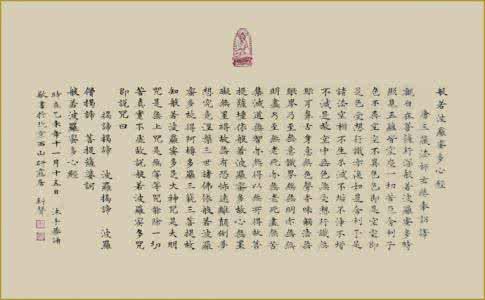 般若波羅蜜多心經
唐三藏法師玄奘奉詔譯
觀自在菩薩行深般若波羅蜜多時
照見五蘊皆空度一切苦厄舍利子
色不異空空不異色色即是空空即
是色受想行識亦復如是舍利子是
諸法空相不生不滅不垢不淨不增
不減是故空中無色無受想行識無
眼耳鼻舌身意無色聲香味觸法無
眼界乃至無意識界無無明亦無無
明盡乃至無老死亦無老死盡無苦
集滅道無智亦無得以無所得故菩
提薩埵依般若波羅蜜多故心無罣
礙無罣礙故無有恐怖遠離顛倒夢
想究竟涅槃三世諸佛依般若波羅
蜜多故得阿耨多羅三藐三菩提故
知般若波羅蜜多是大神咒是大明
咒是無上咒是無等等咒能除一切
苦真實不虛故說般若波羅蜜多咒
即說咒曰
揭諦揭諦 波羅揭諦 波羅
僧揭諦 菩提薩婆訶
般若波羅蜜多心經
時在乙未年十一月十五日 沐手恭誦
敬書於北京西山